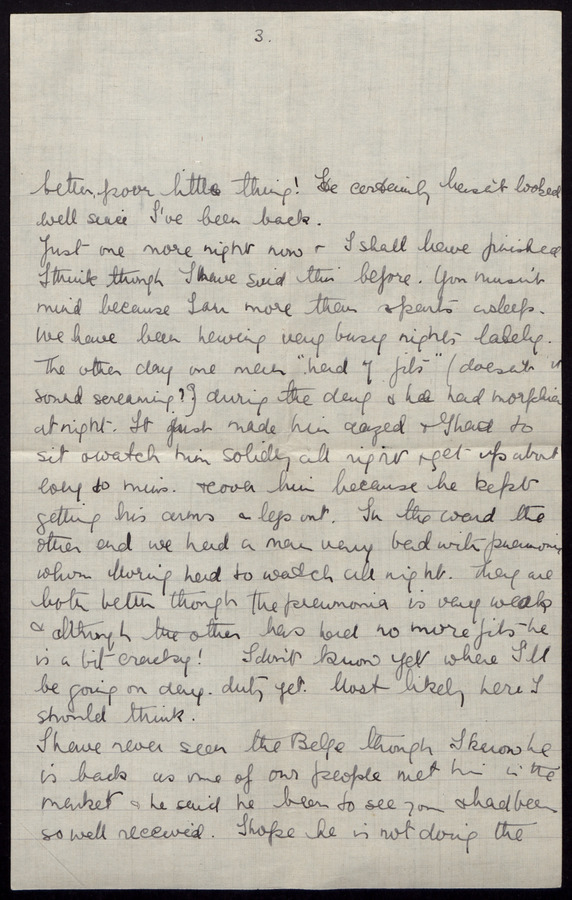 3.
better, poor little thing! He certainly hasn't looked
well since I've been back.
Just one more night now & I shall have finished
I think though I have said this before. You mustn't
mind because I am more than ¾ parts asleep.
We have been having very busy nights lately.
The other day one man "had 7 fits" (doesn't it
sound screaming?) during the day & he had morphia
at night. It just made him dazed & I had to
sit & watch him solidly all night & get up about
every 10 mins. & cover him because he kept
getting his arms & legs out. In the ward the
other end we had a man very bad with pneumonia
whom had to watch all night. They are
both better though the pneumonia is very weak
& although the other has had no more fits - he
is a bit cracky! I don't know yet where I'll
be going on day. duty yet. Most likely here I
should think.
I have never seen the Belge though I know he
is back as one of our people met him in the
market & he said he been to see you & had been
so well received. I hope he is not doing the